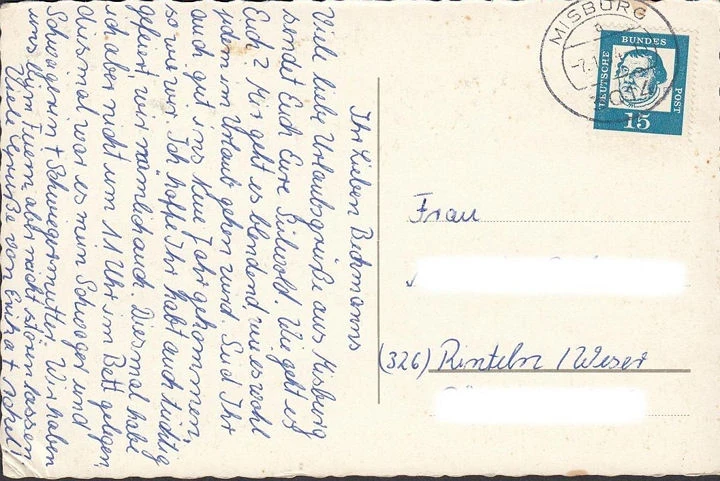 Ihr Lieben Bechmanns
Viele liebe Urlaubsgrüße aus Misburg
sendet Euch Eure Wie geht es
Euch? Mir geht es blendend, wie es wohl
jedem im Urlaub gehen wird. Seid Ihr
auch gut ins Neue Jahr gekommen,
so wie wir. Ich hoffe Ihr habt auch tüchtig
gefeiert wir nämlich auch. Diesmal habe
ich aber nicht um 11 Uhr im Bett gelegen,
diesmal war es mein Schwager und
Schwägerin + Schwiegermutter. Wir haben
uns beim Feiern aber nicht stören lassen
Viele Grüße von
MISBURG
DEUTSCHE BUNDES POST
15
Frau
(326) Rinteln / Weser